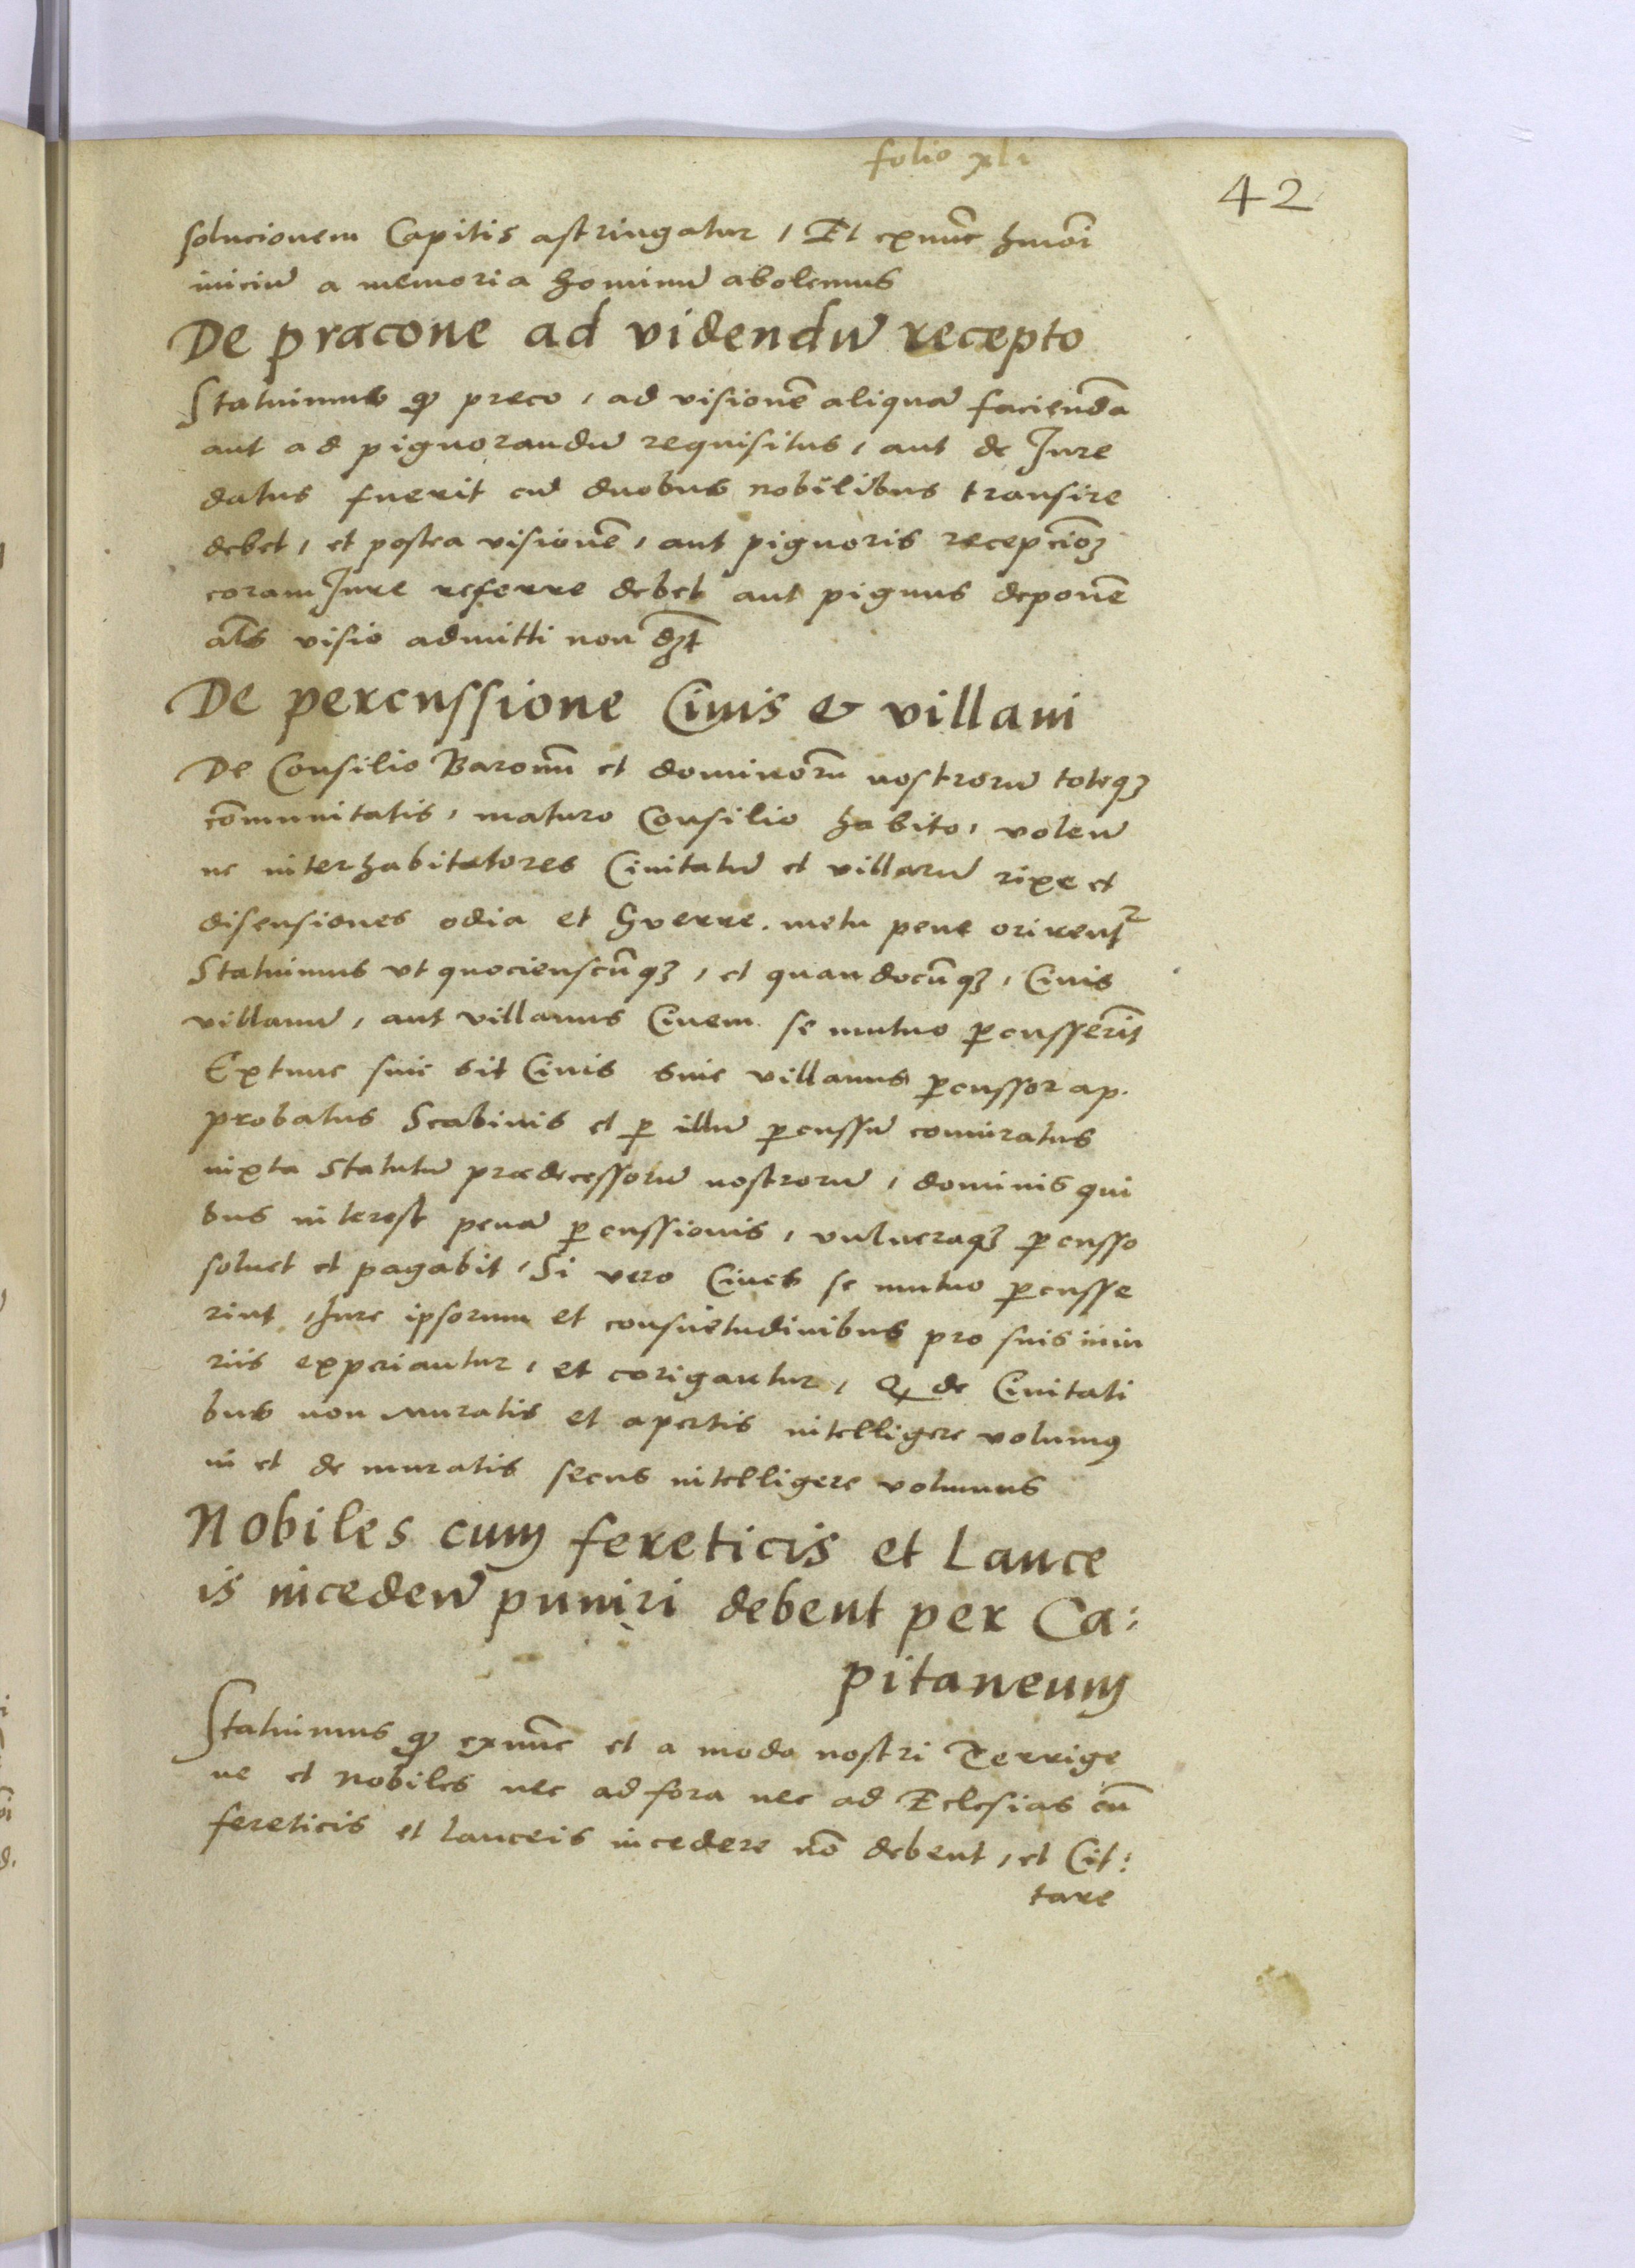 folio xli
42
solucionem Capitis astringatur, Et exnūc hmōi
iniciū a memoria hominū abolemus
De pracone ad videndū recepto
Statuimus ꝙ preco, ad visionē aliquā faciendā
aut ad pignorandū requisitus, aut de Iure
datus fuerit cū duobus nobilibus transire
debet, et postea visionē, aut pignoris recepcioꝫ
coram Iure referre debet aut pignus deponē
als visio admitti non dꝫt
De percussione Ciuis & villani
De Consilio Baronū et dominorū nostrorū totiqꝫ
cōmunitatis, maturo Consilio habito, volen̄
ne inter habitatores Ciuitatū et villarū rixe et
disensiones odia et Gverre. metu pene orirent᷑
Statuimus vt quocienscūqꝫ, et quandocūqꝫ, Ciuis
villanū, aut villanus Ciuem se mutuo ꝑcusserīt
Extunc siui sit Ciuis siue villanus ꝑcussor ap.
probatus Scabinis et ꝑ illū ꝑcussū coniuratus
iuxta Statutū prædecessorū nostrorū, dominis qui
bus interest penā ꝑcussionis, vulneraqꝫ ꝑcusso
soluet et pagabit, Si vero Ciues se mutuo ꝑcusse
rint, Iure ipsorum et consuetudinibus pro suis iniu
riis expeiantur, et corigantur, Q de Ciuitati
bus non muratis et apertis intelligere volumꝯ
in et de muratis secus intelligere volumus
Nobiles cum fereticis et Lance
is inceden̄ puniri debent per Ca:
pitaneum
Statuimus ꝙ exnūc et a modo nostri Terrige
ne et Nobiles nec ad fora nec ad Eclesias cū
fereticis et lanceis incedere nō debent, et Cit:
tare